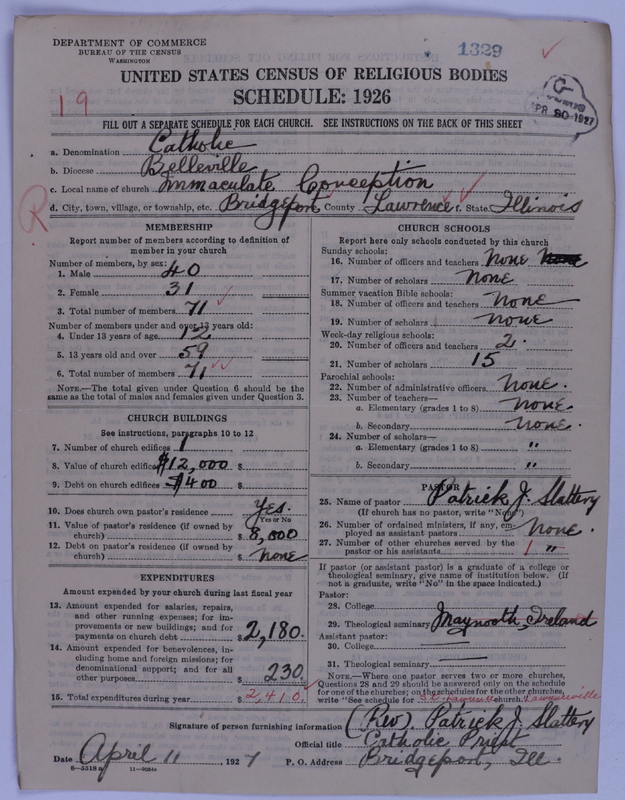 DEPARTMENT OF COMMERCE
BUREAU OF THE CENSUS
WASHINGTON
1329
UNITED STATES CENSUS OF RELIGIOUS BODIES
SCHEDULE: 1926
19
APR 30 1927
FILL OUT A SEPARATE SCHEDULE FOR EACH CHURCH. SEE INSTRUCTIONS ON THE BACK OF THIS SHEET
a. Denomination Catholic
b. Diocese Belleville
c. Local name of church Immaculate Conception
d. City, town, village, or township, etc. Bridgeport County Lawrence f. State Illinois
R
MEMBERSHIP
Report number of members according to definition of
member in your church
Number of members, by sex:
1. Male 40
2. Female 31
3. Total number of members 71
Number of members under and over 13 years old:
4. Under 13 years of age 12
5. 13 years old and over 59
6. Total number of members 71
NOTE.—The total given under Question 6 should be the
same as the total of males and females given under Question 3.
CHURCH BUILDINGS
See instructions, paragraphs 10 to 12
7. Number of church edifices 1
8. Value of church edifices $12,000 $
9. Debt on church edifices $400 $
10. Does church own pastor's residence Yes.
Yes or No
11. Value of pastor's residence (if owned by
church) $ 8,000
12. Debt on pastor's residence (if owned by
church) $ None
EXPENDITURES
Amount expended by your church during last fiscal year
13. Amount expended for salaries, repairs,
and other running expenses; for im-
provements or new buildings; and for
payments on church debt $ 2,180.
14. Amount expended for benevolences, in-
cluding home and foreign missions; for
denominational support; and for all
other purposes $ 230.
15. Total expenditures during year $ 2,410.
CHURCH SCHOOLS
Report here only schools conducted by this church
Sunday schools:
16. Number of officers and teachers None
17. Number of scholars None
Summer vacation Bible schools:
18. Number of officers and teachers None
19. Number of scholars None
Week-day religious schools:
20. Number of officers and teachers 2.
21. Number of scholars 15
Parochial schools:
22. Number of administrative officers None.
23. Number of teachers—
a. Elementary (grades 1 to 8) None.
b. Secondary None.
24. Number of scholars—
a. Elementary (grades 1 to 8) "
b. Secondary "
PASTOR
25. Name of pastor Patrick J. Slattery
(If church has no pastor, write "None")
26. Number of ordained ministers, if any, em-
ployed as assistant pastors None.
27. Number of other churches served by the
pastor or his assistants 1 "
If pastor (or assistant pastor) is a graduate of a college or
theological seminary, give name of institution below. (If
not a graduate, write "No" in the space indicated.)
Pastor:
28. College
29. Theological seminary Maynooth, Ireland
Assistant pastor:
30. College
31. Theological seminary
NOTE.—Where one pastor serves two or more churches,
Questions 28 and 29 should be answered only on the schedule
for one of the churches; on the schedules for the other churches,
write "See schedule for St. Lawrence church, Lawrenceville
Signature of person furnishing information (Rev). Patrick J. Slattery
Official title Catholic Priest
Date April 11 1927 P. O. Address Bridgeport, Ill.
8—5518 a 11—9084a